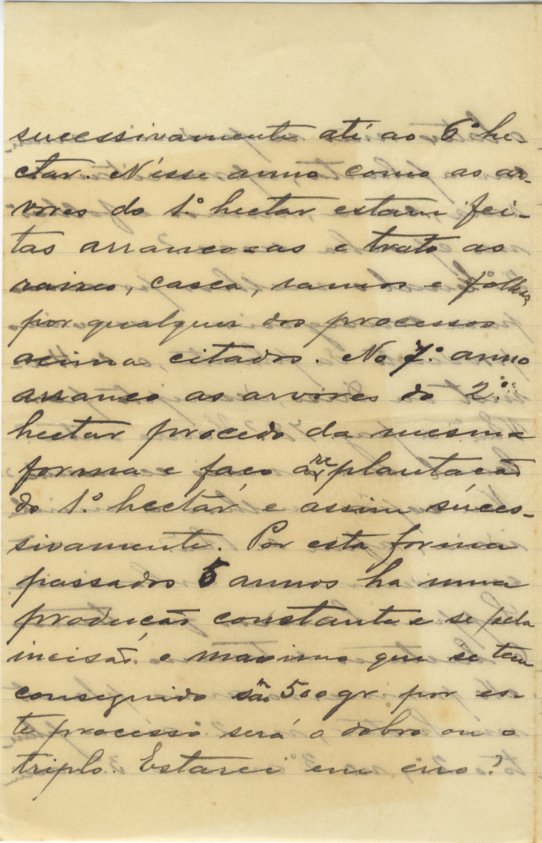 successivamente até ao 6º he-
ctar. Nésse anno como as ar-
vores do 1º hectar estam fei-
tas arranco-as e trato as
raizes, casca, ramos e folhas
por qualquer dos processos
acima citados. No 7º anno
arranco as arvores do 2º
hectar procedo da mesma
forma e faco a re plantação
do 1º hectar e assim succes-
sivamente. Por esta forma
passados 5 annos ha uma
producção constante e se pela
incisão o maximo que se tem
conseguido são 500 gr por es-
te processo será o dobro ou o
triplo. Estarei em erro?